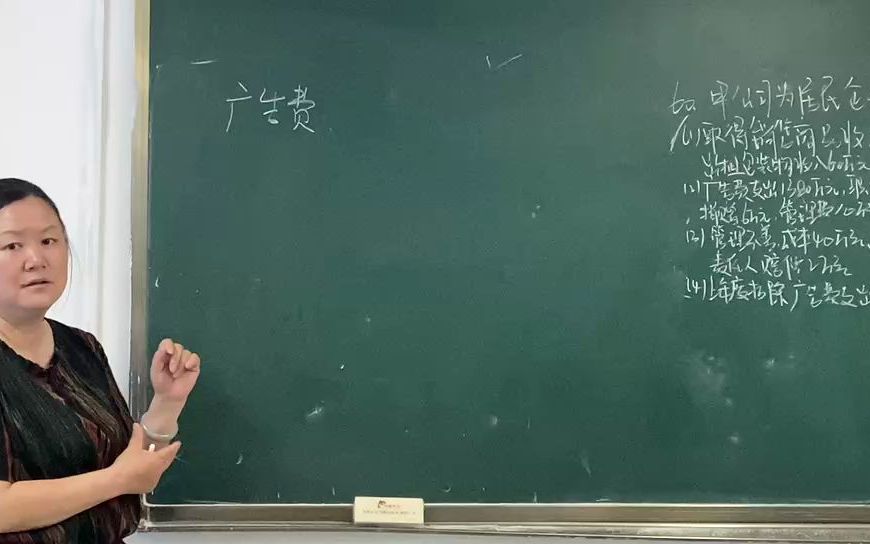 广告费
如 甲公司为居民企
(1)取得销售商品收
出租包装物收入60万元
(2)广告费支出1380万元,职
,捐赠6万元,管理费10万
(3)管理不善,成本40万元,
责任人赔偿2万元
(4)上年度扣除广告费支出